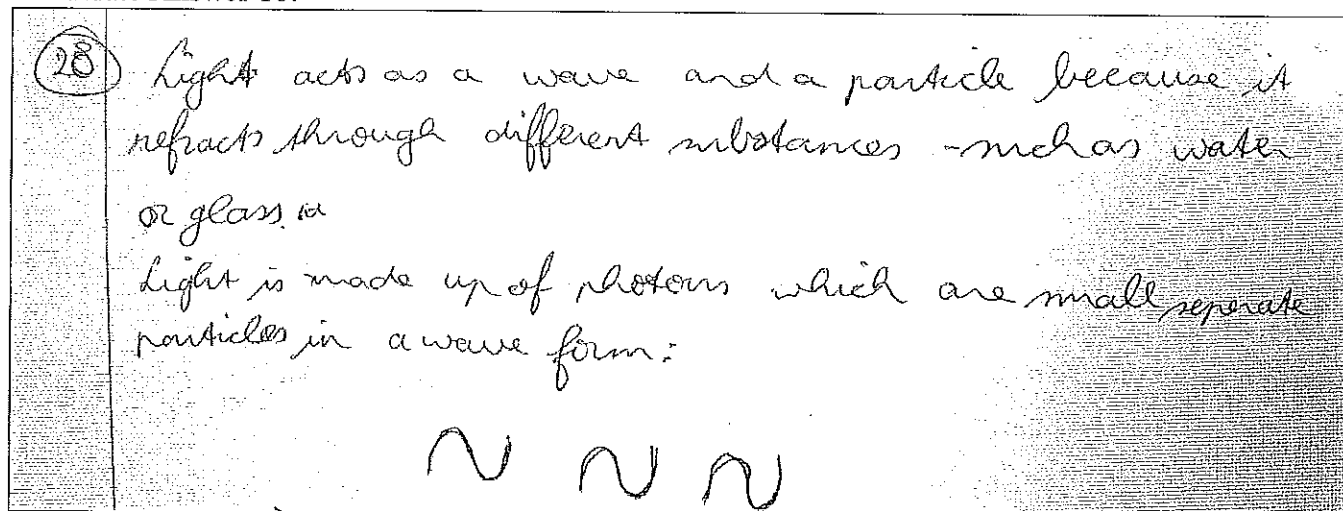 28 Light acts as a wave and a particle because it
refracts through different substances - such as water
or glass.
Light is made up of photons which are small seperate
particles in a wave form: